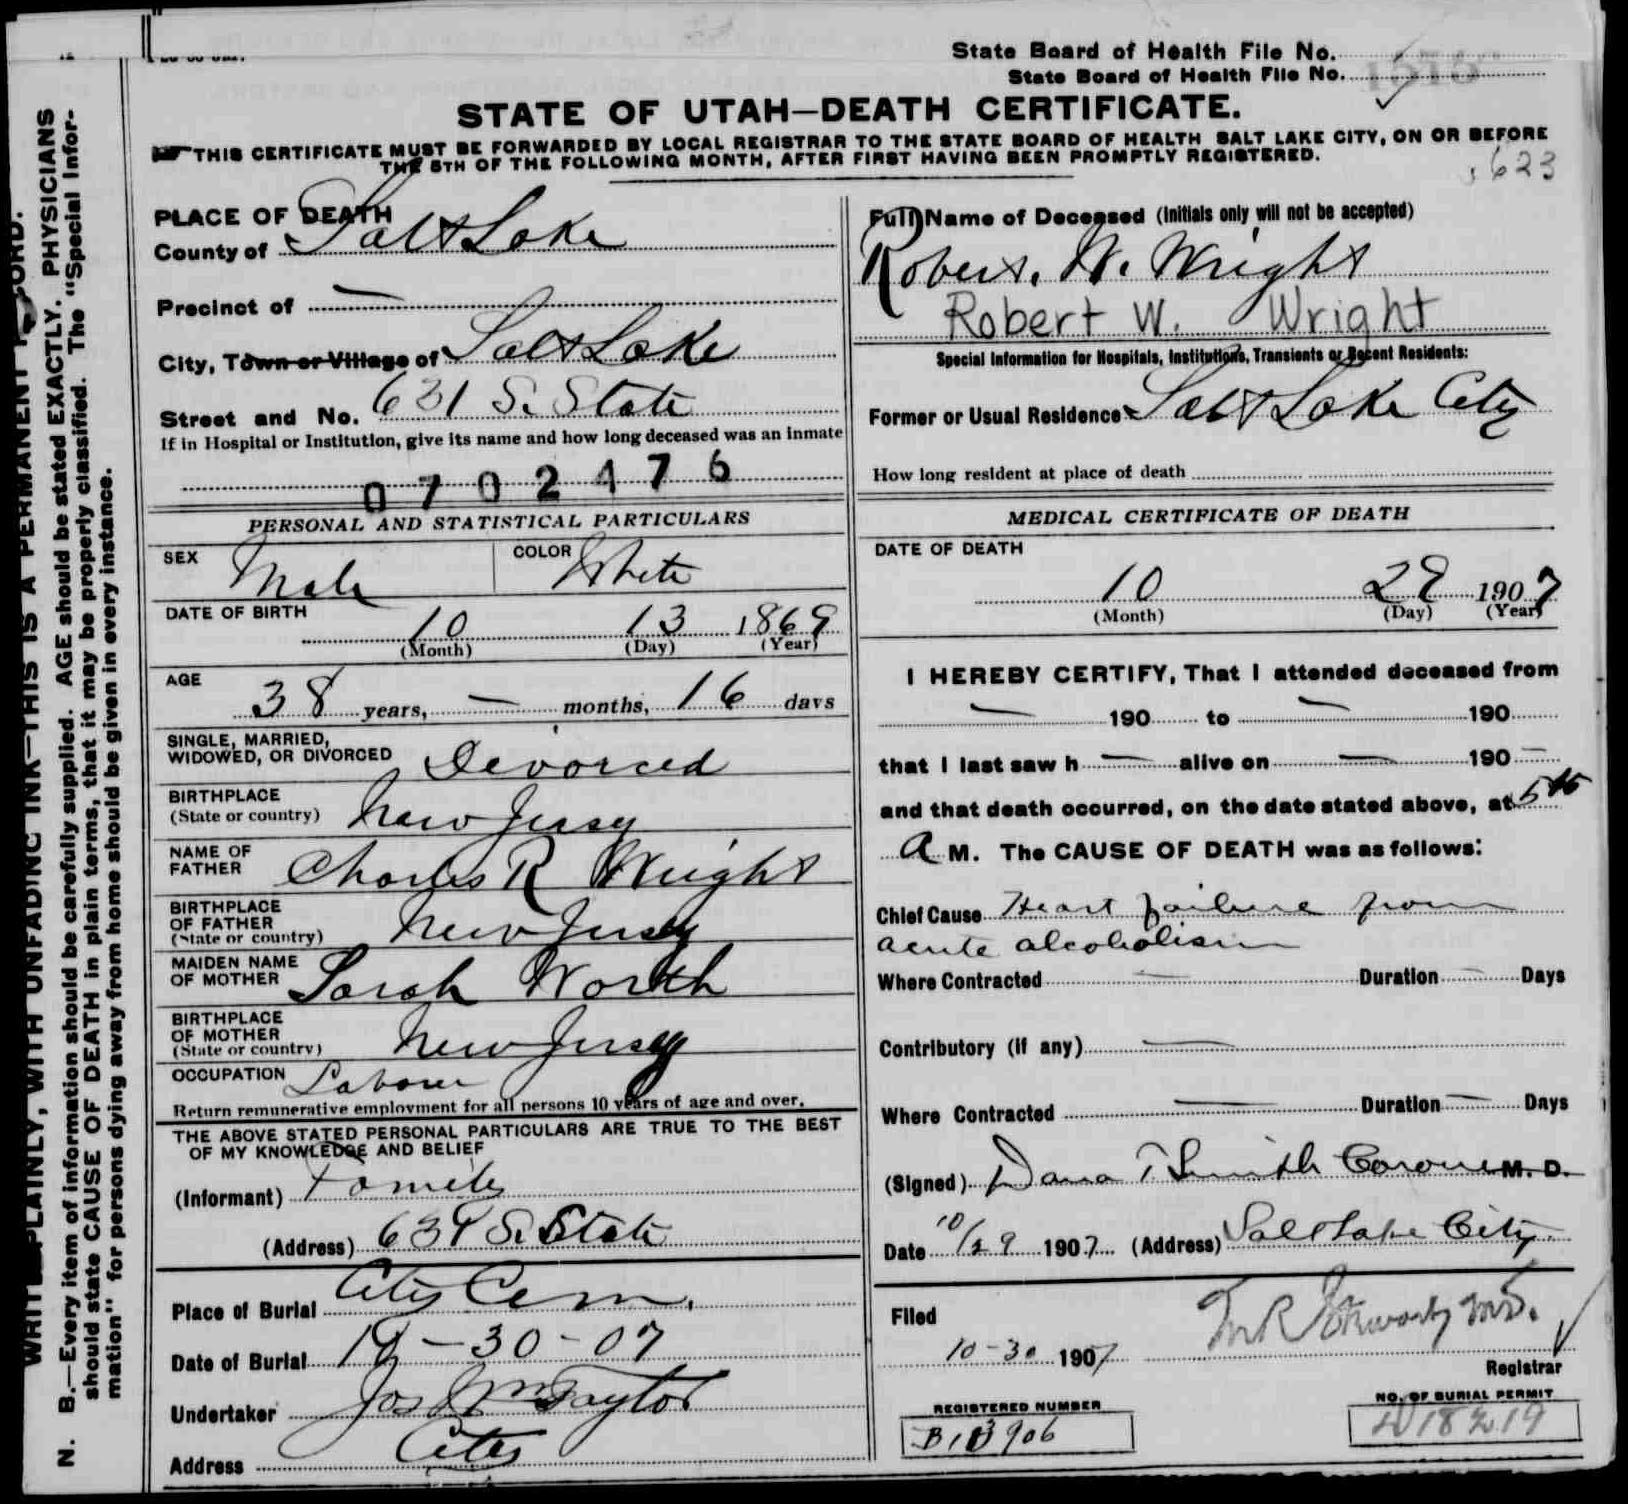 State Board of Health File No.
State Board of Health File No.
STATE OF UTAH—DEATH CERTIFICATE.
THIS CERTIFICATE MUST BE FORWARDED BY LOCAL REGISTRAR TO THE STATE BOARD OF HEALTH SALT LAKE CITY, ON OR BEFORE
THE 5TH OF THE FOLLOWING MONTH, AFTER FIRST HAVING BEEN PROMPTLY REGISTERED.
623
PLACE OF DEATH
County of Salt Lake
Precinct of —
City, Town or Village of Salt Lake
Street and No. 631 S. State
If in Hospital or Institution, give its name and how long deceased was an inmate
0702476
PERSONAL AND STATISTICAL PARTICULARS
SEX Male COLOR White
DATE OF BIRTH 10 13 1869
(Month) (Day) (Year)
AGE 38 years, — months, 16 days
SINGLE, MARRIED,
WIDOWED, OR DIVORCED Divorced
BIRTHPLACE
(State or country) New Jersey
NAME OF
FATHER Charles R Wright
BIRTHPLACE
OF FATHER
(State or country) New Jersey
MAIDEN NAME
OF MOTHER Sarah Worth
BIRTHPLACE
OF MOTHER
(State or country) New Jersey
OCCUPATION Laborer
Return remunerative employment for all persons 10 years of age and over.
THE ABOVE STATED PERSONAL PARTICULARS ARE TRUE TO THE BEST
OF MY KNOWLEDGE AND BELIEF
(Informant) Family
(Address) 631 S. State
Place of Burial City Cem.
Date of Burial 10-30-07
Undertaker Jos Wm Taylor
Address City
Full Name of Deceased (Initials only will not be accepted)
Robert. W. Wright
Robert W. Wright
Special Information for Hospitals, Institutions, Transients or Recent Residents:
Former or Usual Residence Salt Lake City
How long resident at place of death
MEDICAL CERTIFICATE OF DEATH
DATE OF DEATH
10 29 1907
(Month) (Day) (Year)
I HEREBY CERTIFY, That I attended deceased from
— 190 to — 190
that I last saw h — alive on — 190 —
and that death occurred, on the date stated above, at 5 15
A M. The CAUSE OF DEATH was as follows:
Chief Cause Heart failure from
acute alcoholism
Where Contracted — Duration — Days
Contributory (if any) —
Where Contracted — Duration — Days
(Signed) Dana T. Smith Coroner M. D.
Date 10/29 1907 (Address) Salt Lake City.
Filed
10-30 1907
Registrar
REGISTERED NUMBER
NO. OF BURIAL PERMIT
WRITE PLAINLY, WITH UNFADING INK—THIS IS A PERMANENT RECORD.
N. B.—Every item of information should be carefully supplied. AGE should be stated EXACTLY. PHYSICIANS
should state CAUSE OF DEATH in plain terms, that it may be properly classified. The "Special Infor-
mation" for persons dying away from home should be given in every instance.